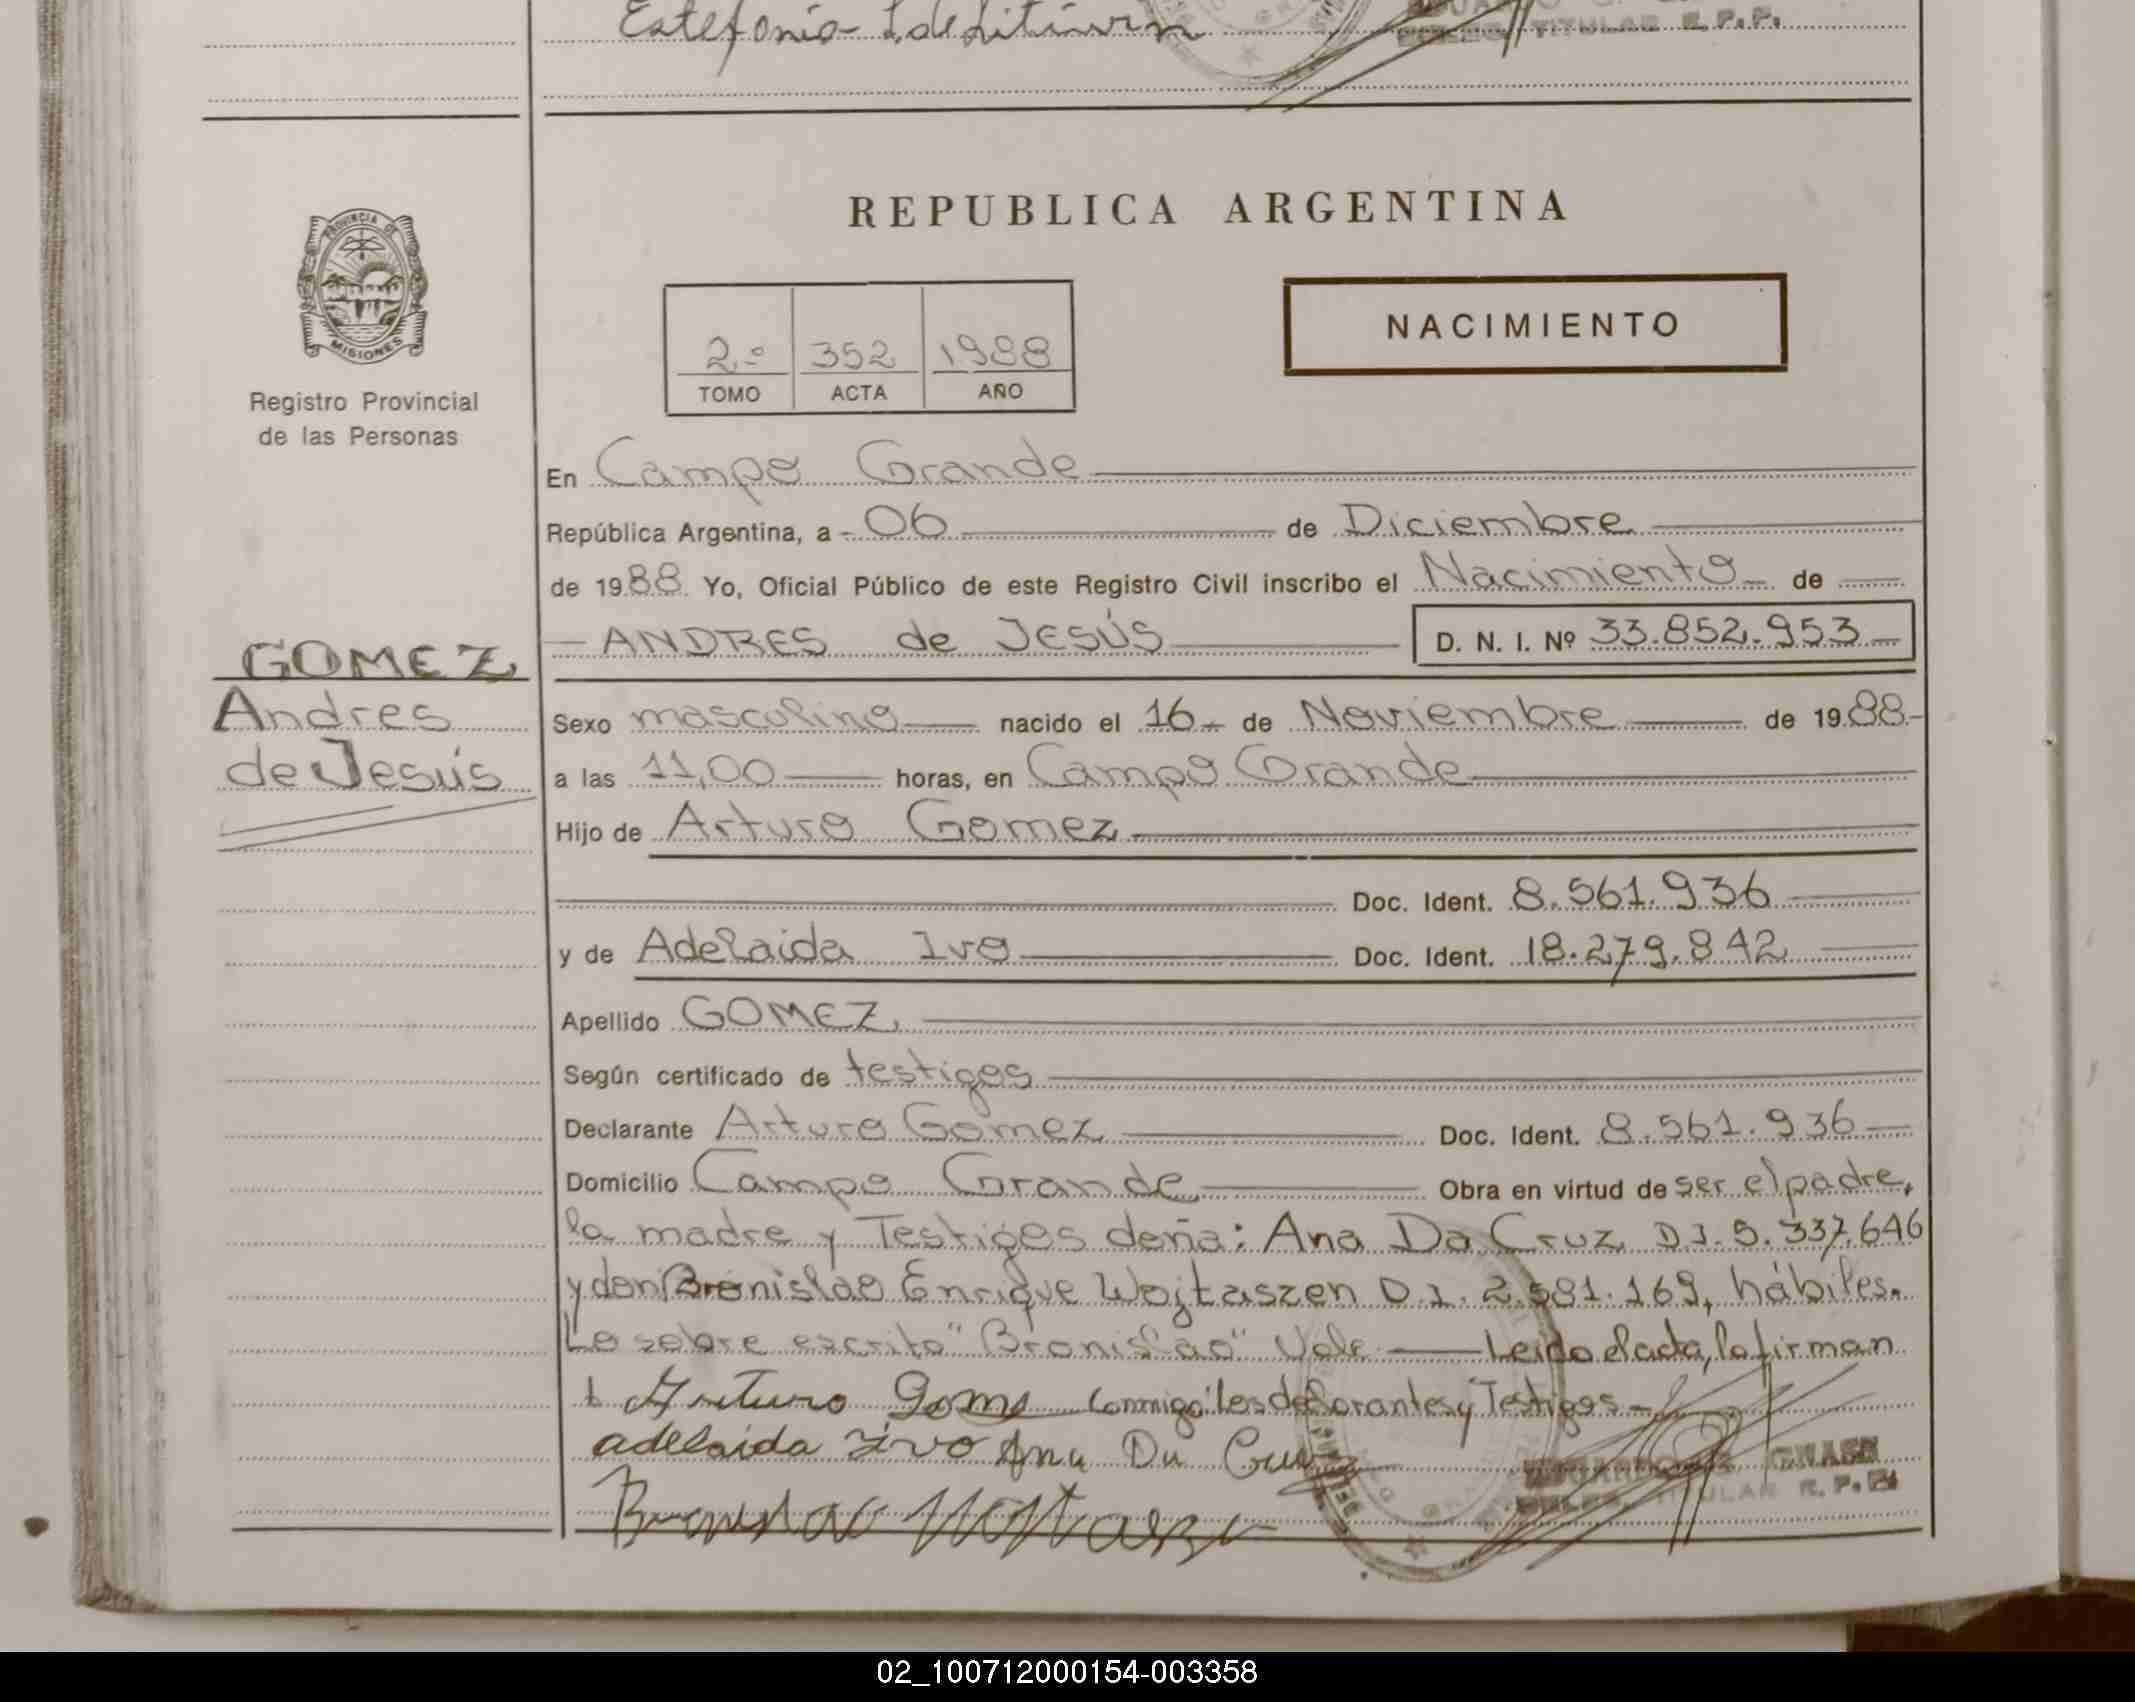 Estefonia L. de Litwin
TITULAR R.P.P.
REPUBLICA ARGENTINA
PROVINCIA DE
MISIONES
NACIMIENTO
2º 352 1988
TOMO ACTA AÑO
Registro Provincial
de las Personas
En Campo Grande
República Argentina, a 06 de Diciembre
de 1988 Yo, Oficial Público de este Registro Civil inscribo el Nacimiento de
ANDRES de JESÚS D. N. I. Nº 33.852.953
GOMEZ
Andres
de Jesús
Sexo masculino nacido el 16 de Noviembre de 1988
a las 11,00 horas, en Campo Grande
Hijo de Arturo Gomez
Doc. Ident. 8.561.936
y de Adelaida Ivo Doc. Ident. 18.279.842
Apellido GOMEZ
Según certificado de testigos
Declarante Arturo Gomez Doc. Ident. 8.561.936
Domicilio Campo Grande Obra en virtud de ser el padre,
la madre y Testigos doña: Ana Da Cruz D.I. 5.337.646
y don Bronislao Enrique Wojtaszen D.I. 2.581.169, hábiles.
Lo sobre escrito "Bronislao" Vale Leido el acta, la firman
Arturo Gome conmigo los declarantes y Testigos
adelaida ivo Ana Da Cruz
TITULAR R.P.P.
Bronislao Wojtaszen
02_100712000154-003358